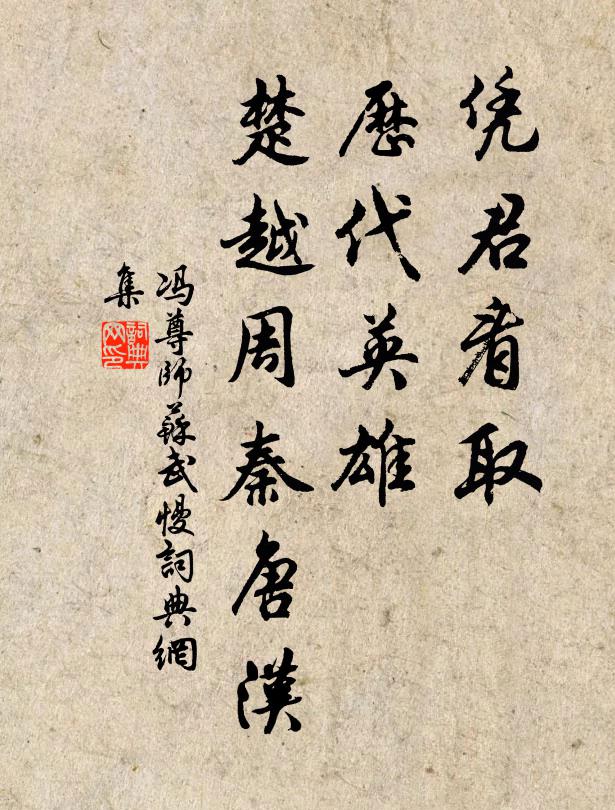 凭君看取
歷代英雄
楚越周秦唐漢
冯尊師蘇武慢詞典網
集
詞典
网印